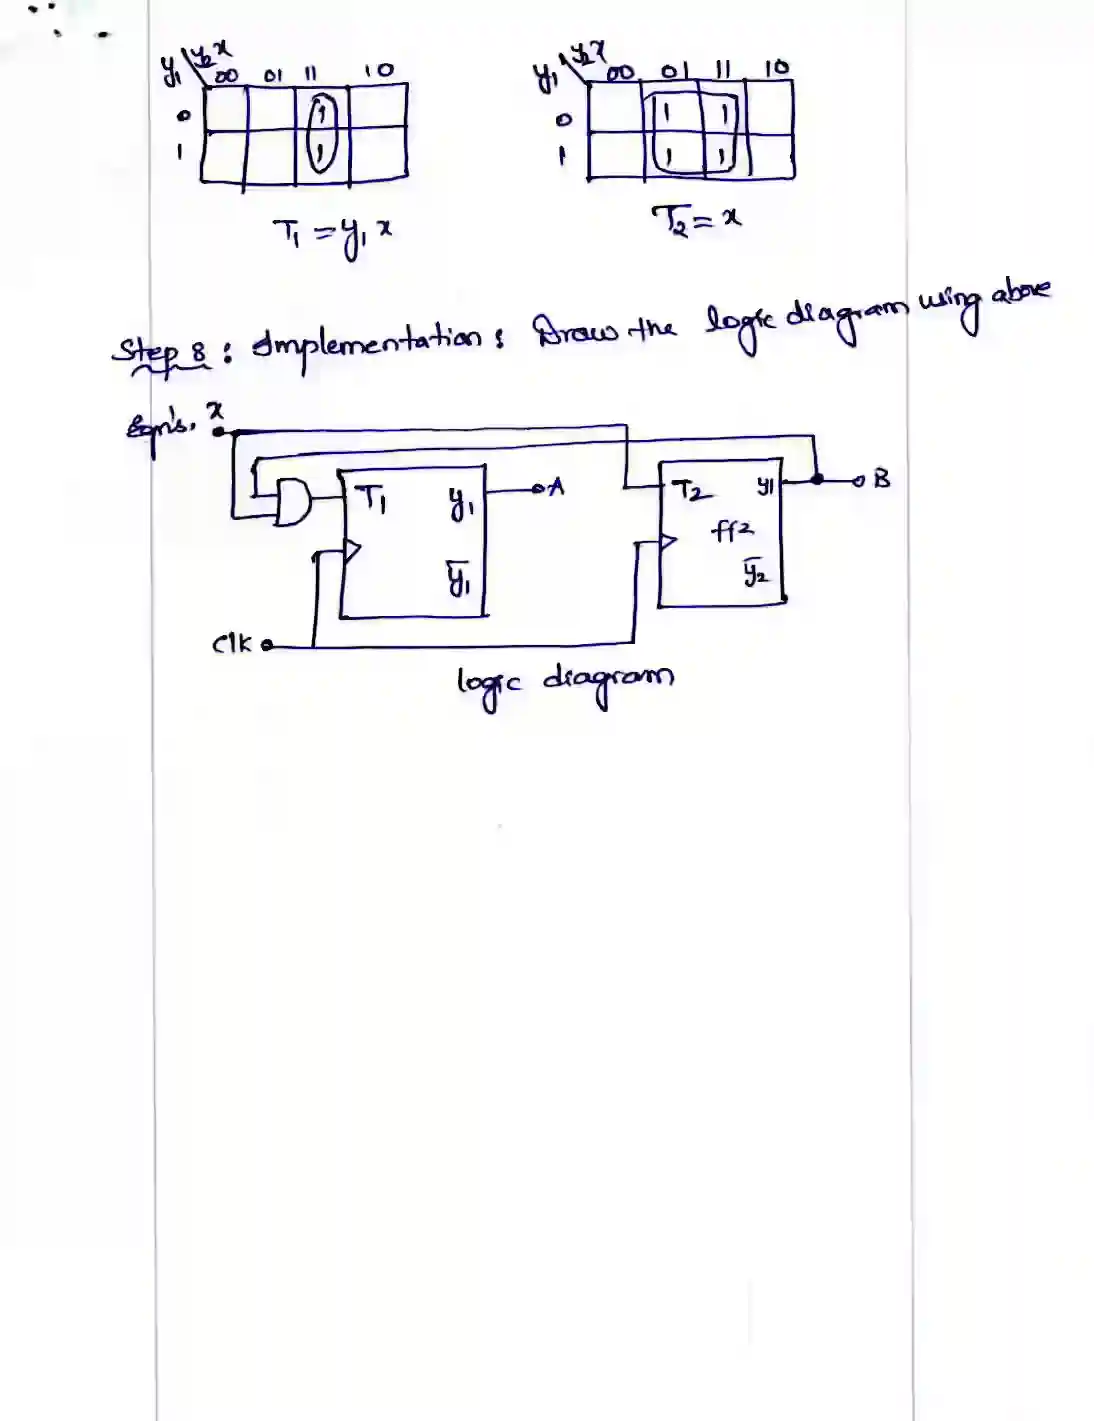 y₁ y₂x y₁ y₂x
00 01 11 10 00 01 11 10
0 1 0 1 1
1 1 1 1 1
T₁ = y₁ x T₂ = x
Step 8 : Implementation : Draw the logic diagram using above
Eqn's. x
T₁ y₁ A T₂ y₁ B
ff2
y̅₁ y̅₂
Clk
logic diagram